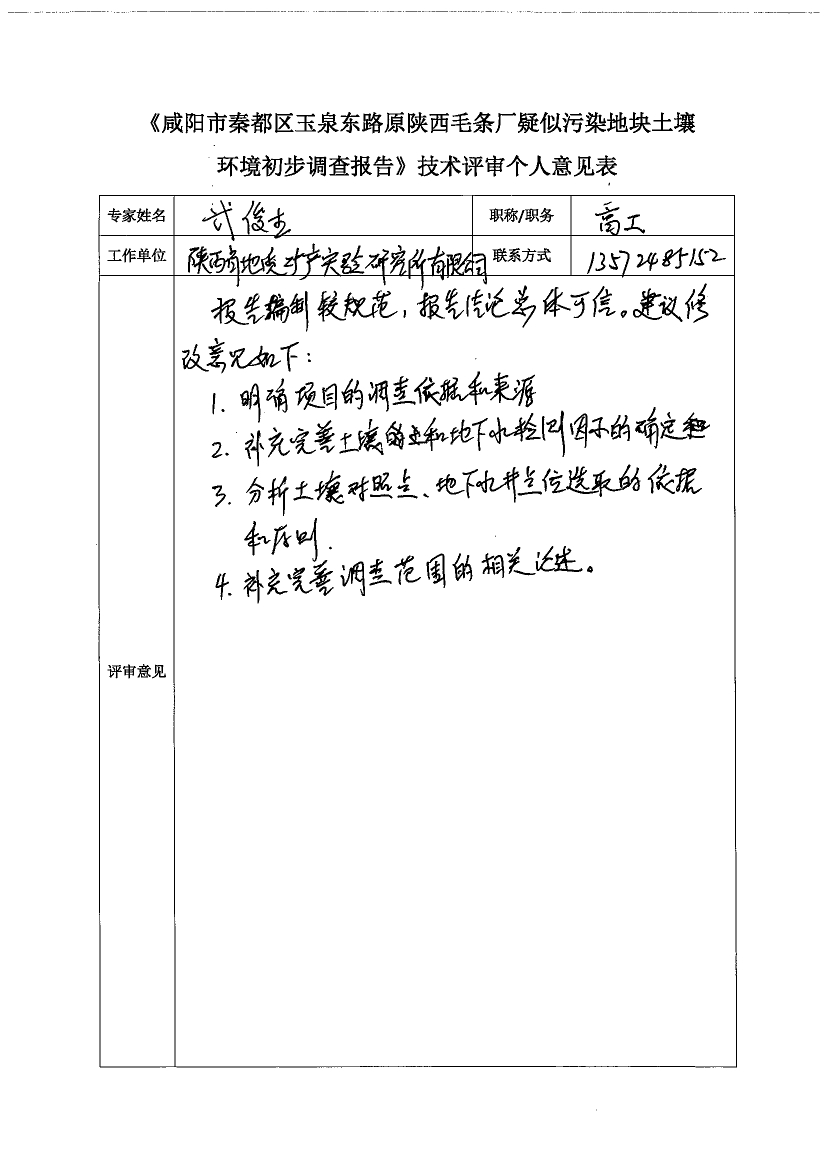 《咸阳市秦都区玉泉东路原陕西毛条厂疑似污染地块土壤
环境初步调查报告》技术评审个人意见表
专家姓名 武俊杰 职称/职务 高工
工作单位 陕西省地质矿产实验研究所有限公司 联系方式 13572485152
评审意见
报告编制较规范，报告结论总体可信。建议修
改意见如下：
1. 明确项目的调查依据和来源
2. 补充完善土壤和地下水检测因子的确定
3. 分析土壤对照点、地下水井点位选取的依据
和原则.
4. 补充完善调查范围的相关论述。